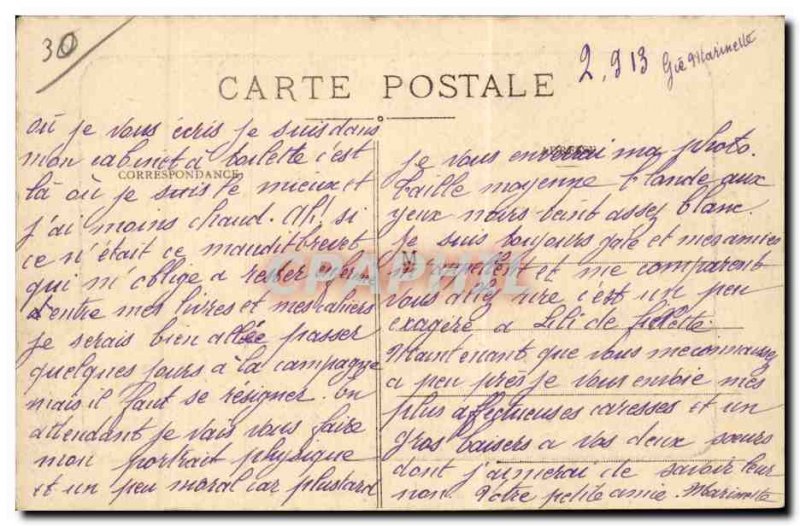 30
2.913
CARTE POSTALE
CORRESPONDANCE
où je vous écris je suis dans
mon cabinet à toilette c'est
là où je suis le mieux et
j'ai moins chaud. Ah! si
ce n'était ce maudit brevet
qui m'oblige a rester
entre mes livres et mes cahiers
je serais bien allée passer
quelques jours à la campagne
mais il faut se résigner. En
attendant je vais vous faire
mon portrait physique
et un peu moral car plus tard
ADRESSE
M
je vous enverrai ma photo.
taille moyenne blonde aux
yeux noirs teint assez blanc.
Je suis toujours gaie et mes amies
m'appellent et me comparent
vous allez rire c'est un peu
exagéré a Lili de
Maintenant que vous me connaissez
a peu près je vous envoie mes
plus affectueuses caresses et un
gros baisers a vos deux sœurs
dont j'aimerai de savoir leur
nom. Votre petite amie. Marinette
CPAPHIL